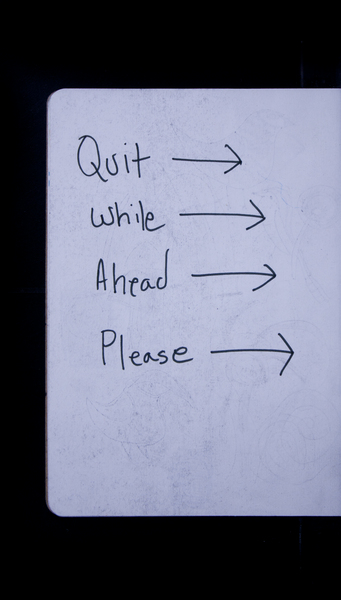 Quit →
While →
Ahead →
Please →